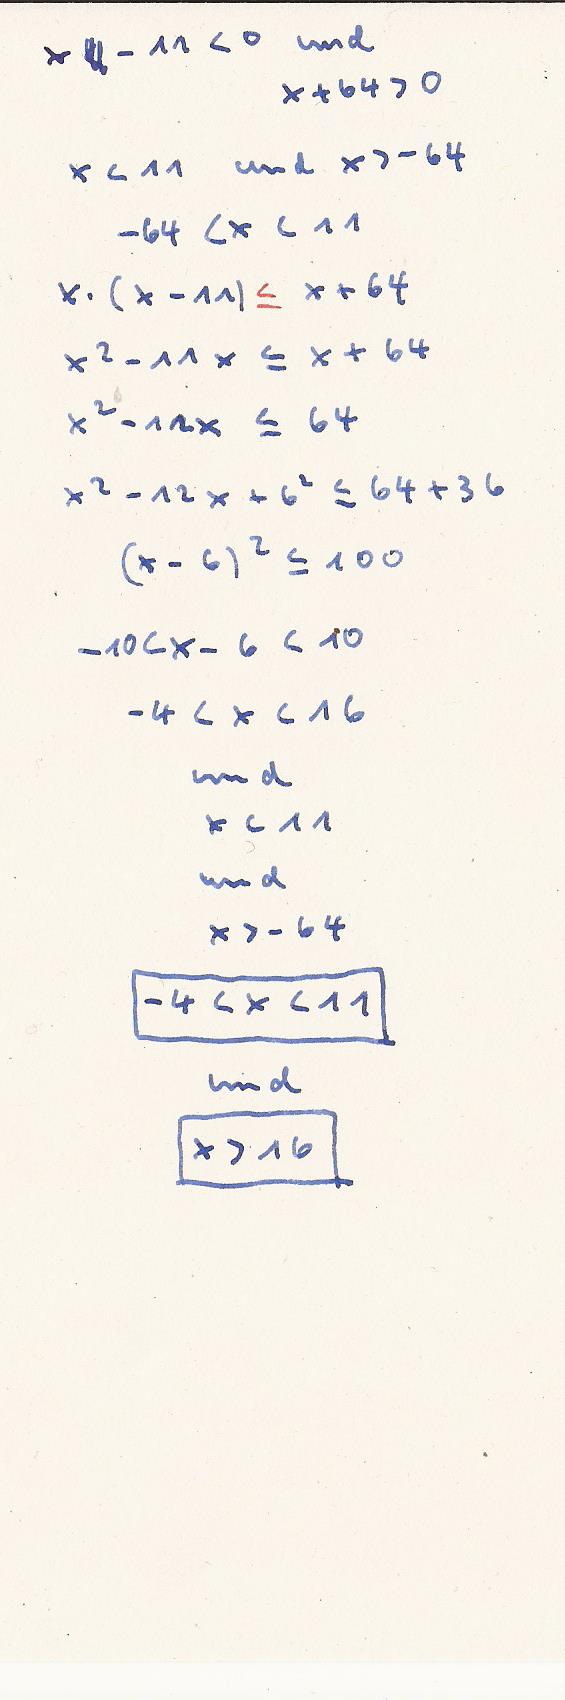 x - 11 < 0 und
x + 64 > 0
x < 11 und x > -64
-64 < x < 11
x · (x - 11) ≤ x + 64
x² - 11x ≤ x + 64
x² - 12x ≤ 64
x² - 12x + 6² ≤ 64 + 36
(x - 6)² ≤ 100
-10 < x - 6 < 10
-4 < x < 16
und
x < 11
und
x > -64
-4 < x < 11
und
x > 16